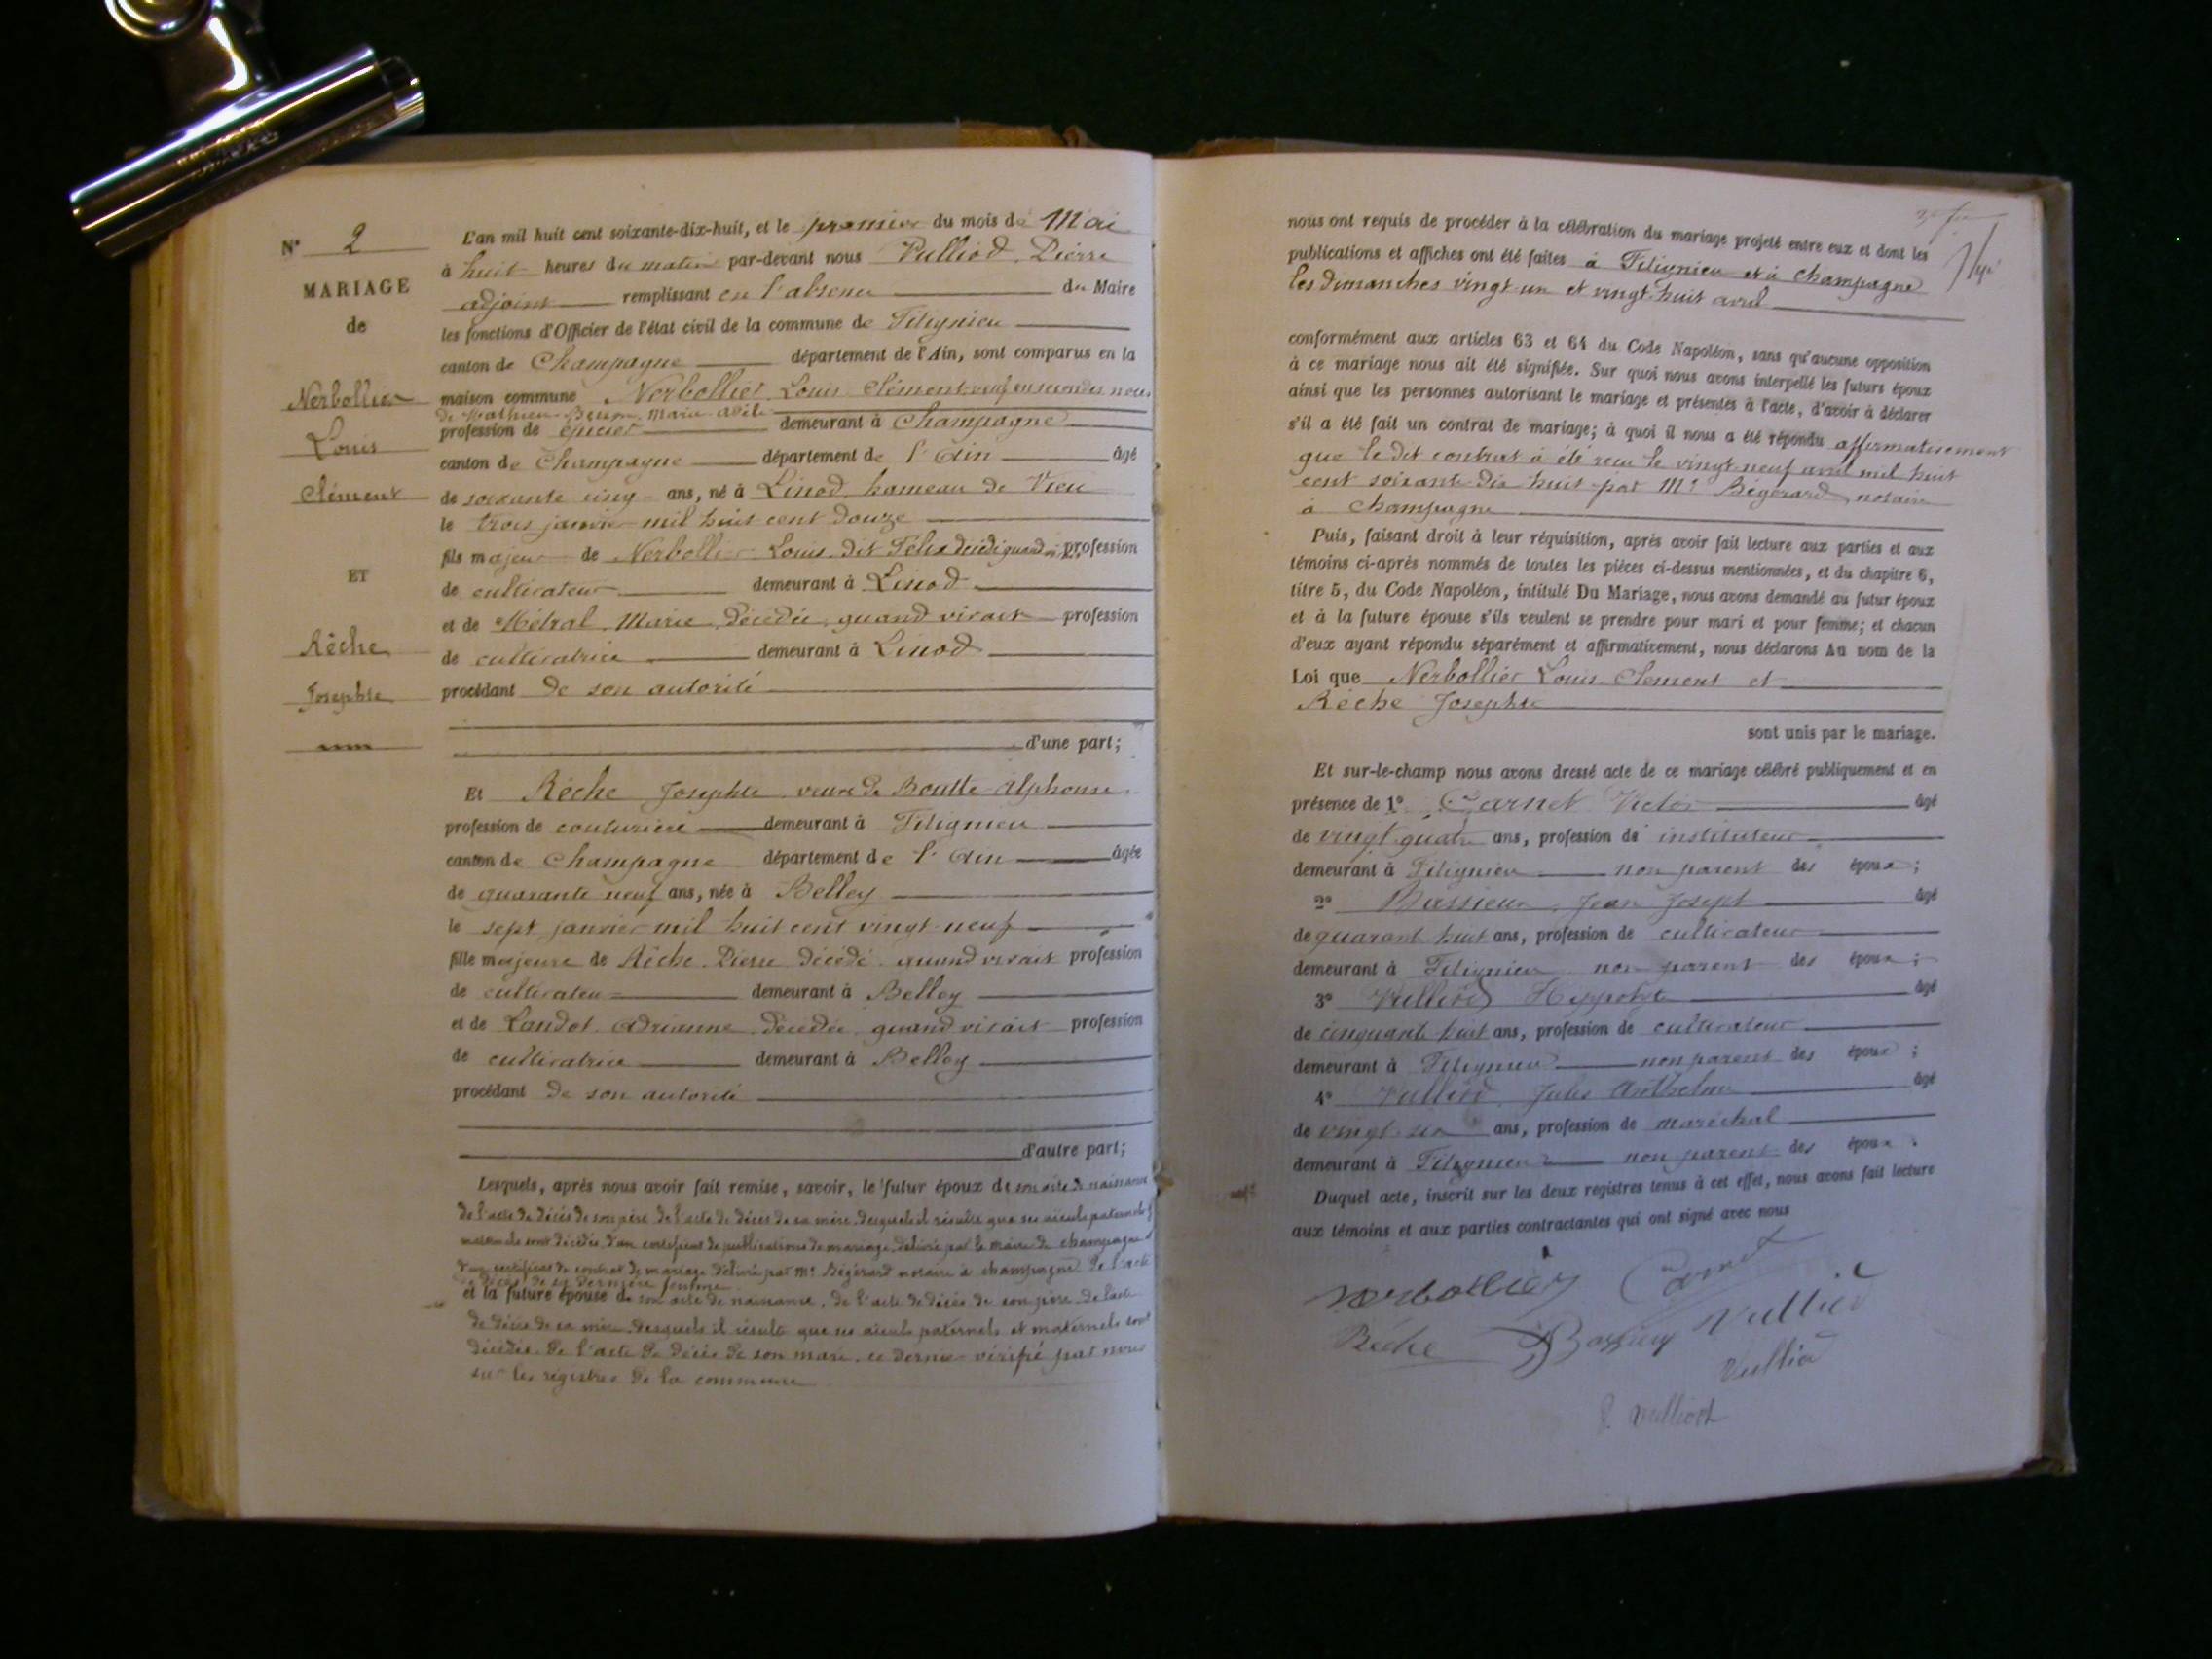 N° 2
MARIAGE
de
Nerbollier
Louis
Clément
ET
Rêche
Josephte
L'an mil huit cent soixante-dix-huit, et le premier du mois de Mai
à huit heures du matin par-devant nous Vulliod Pierre
adjoint remplissant en l'absence du Maire
les fonctions d'Officier de l'état civil de la commune de Filignieu
canton de Champagne département de l'Ain, sont comparus en la
maison commune Nerbollier Louis Clément, veuf en secondes noces
de Mathieu Marie
profession de épicier demeurant à Champagne
canton de Champagne département de l'Ain âgé
de soixante cinq ans, né à Linod hameau de Vieu
le trois janvier mil huit cent douze
fils majeur de Nerbollier Louis dit Félix décédé quand vivait profession
de cultivateur demeurant à Linod
et de Métral Marie, décédée, quand vivait profession
de cultivatrice demeurant à Linod
procédant de son autorité
d'une part;
Et Rêche Josephte veuve de Boulle Alphonse
profession de couturière demeurant à Filignieu
canton de Champagne département de l'Ain âgée
de quarante neuf ans, née à Belley
le sept janvier mil huit cent vingt-neuf
fille majeure de Rêche Pierre décédé quand vivait profession
de cultivateur demeurant à Belley
et de Landot Adrianne décédée quand vivait profession
de cultivatrice demeurant à Belley
procédant de son autorité
d'autre part;
Lesquels, après nous avoir fait remise, savoir, le futur époux de son acte de naissance
de l'acte de décès de son père de l'acte de décès de sa mère desquels il résulte que ses aïeuls paternels
maternels sont décédés d'un certificat de publications de mariage délivré par le maire de champagne
d'un certificat de contrat de mariage délivré par Me Bégérard notaire à champagne de l'acte
de décès de sa dernière femme
et la future épouse de son acte de naissance, de l'acte de décès de son père de l'acte
de décès de sa mère desquels il résulte que ses aïeuls paternels et maternels sont
décédés. De l'acte de décès de son mari, ce dernier vérifié par nous
sur les registres de la commune
nous ont requis de procéder à la célébration du mariage projeté entre eux et dont les
publications et affiches ont été faites à Filignieu et à Champagne
les dimanches vingt-un et vingt-huit avril
conformément aux articles 63 et 64 du Code Napoléon, sans qu'aucune opposition
à ce mariage nous ait été signifiée. Sur quoi nous avons interpellé les futurs époux
ainsi que les personnes autorisant le mariage et présentes à l'acte, d'avoir à déclarer
s'il a été fait un contrat de mariage; à quoi il nous a été répondu affirmativement
que le dit contrat a été reçu le vingt-neuf avril mil huit
cent soixante dix huit par Me Bégérard notaire
à Champagne
Puis, faisant droit à leur réquisition, après avoir fait lecture aux parties et aux
témoins ci-après nommés de toutes les pièces ci-dessus mentionnées, et du chapitre 6,
titre 5, du Code Napoléon, intitulé Du Mariage, nous avons demandé au futur époux
et à la future épouse s'ils veulent se prendre pour mari et pour femme; et chacun
d'eux ayant répondu séparément et affirmativement, nous déclarons Au nom de la
Loi que Nerbollier Louis Clément et
Rêche Josephte
sont unis par le mariage.
Et sur-le-champ nous avons dressé acte de ce mariage célébré publiquement et en
présence de 1° Carnet Victor âgé
de vingt quatre ans, profession de instituteur
demeurant à Filignieu non parent des époux;
2° Bassieux Jean Joseph âgé
de quarante huit ans, profession de cultivateur
demeurant à Filignieu non parent des époux;
3° Vulliod Hyppolyte âgé
de cinquante huit ans, profession de cultivateur
demeurant à Filignieu non parent des époux;
4° Vulliod Jules Anthelme âgé
de vingt six ans, profession de maréchal
demeurant à Filignieu non parent des époux.
Duquel acte, inscrit sur les deux registres tenus à cet effet, nous avons fait lecture
aux témoins et aux parties contractantes qui ont signé avec nous
Nerbollier Carnet
Rêche Bassieux Vulliod
Vulliod
P. Vulliod